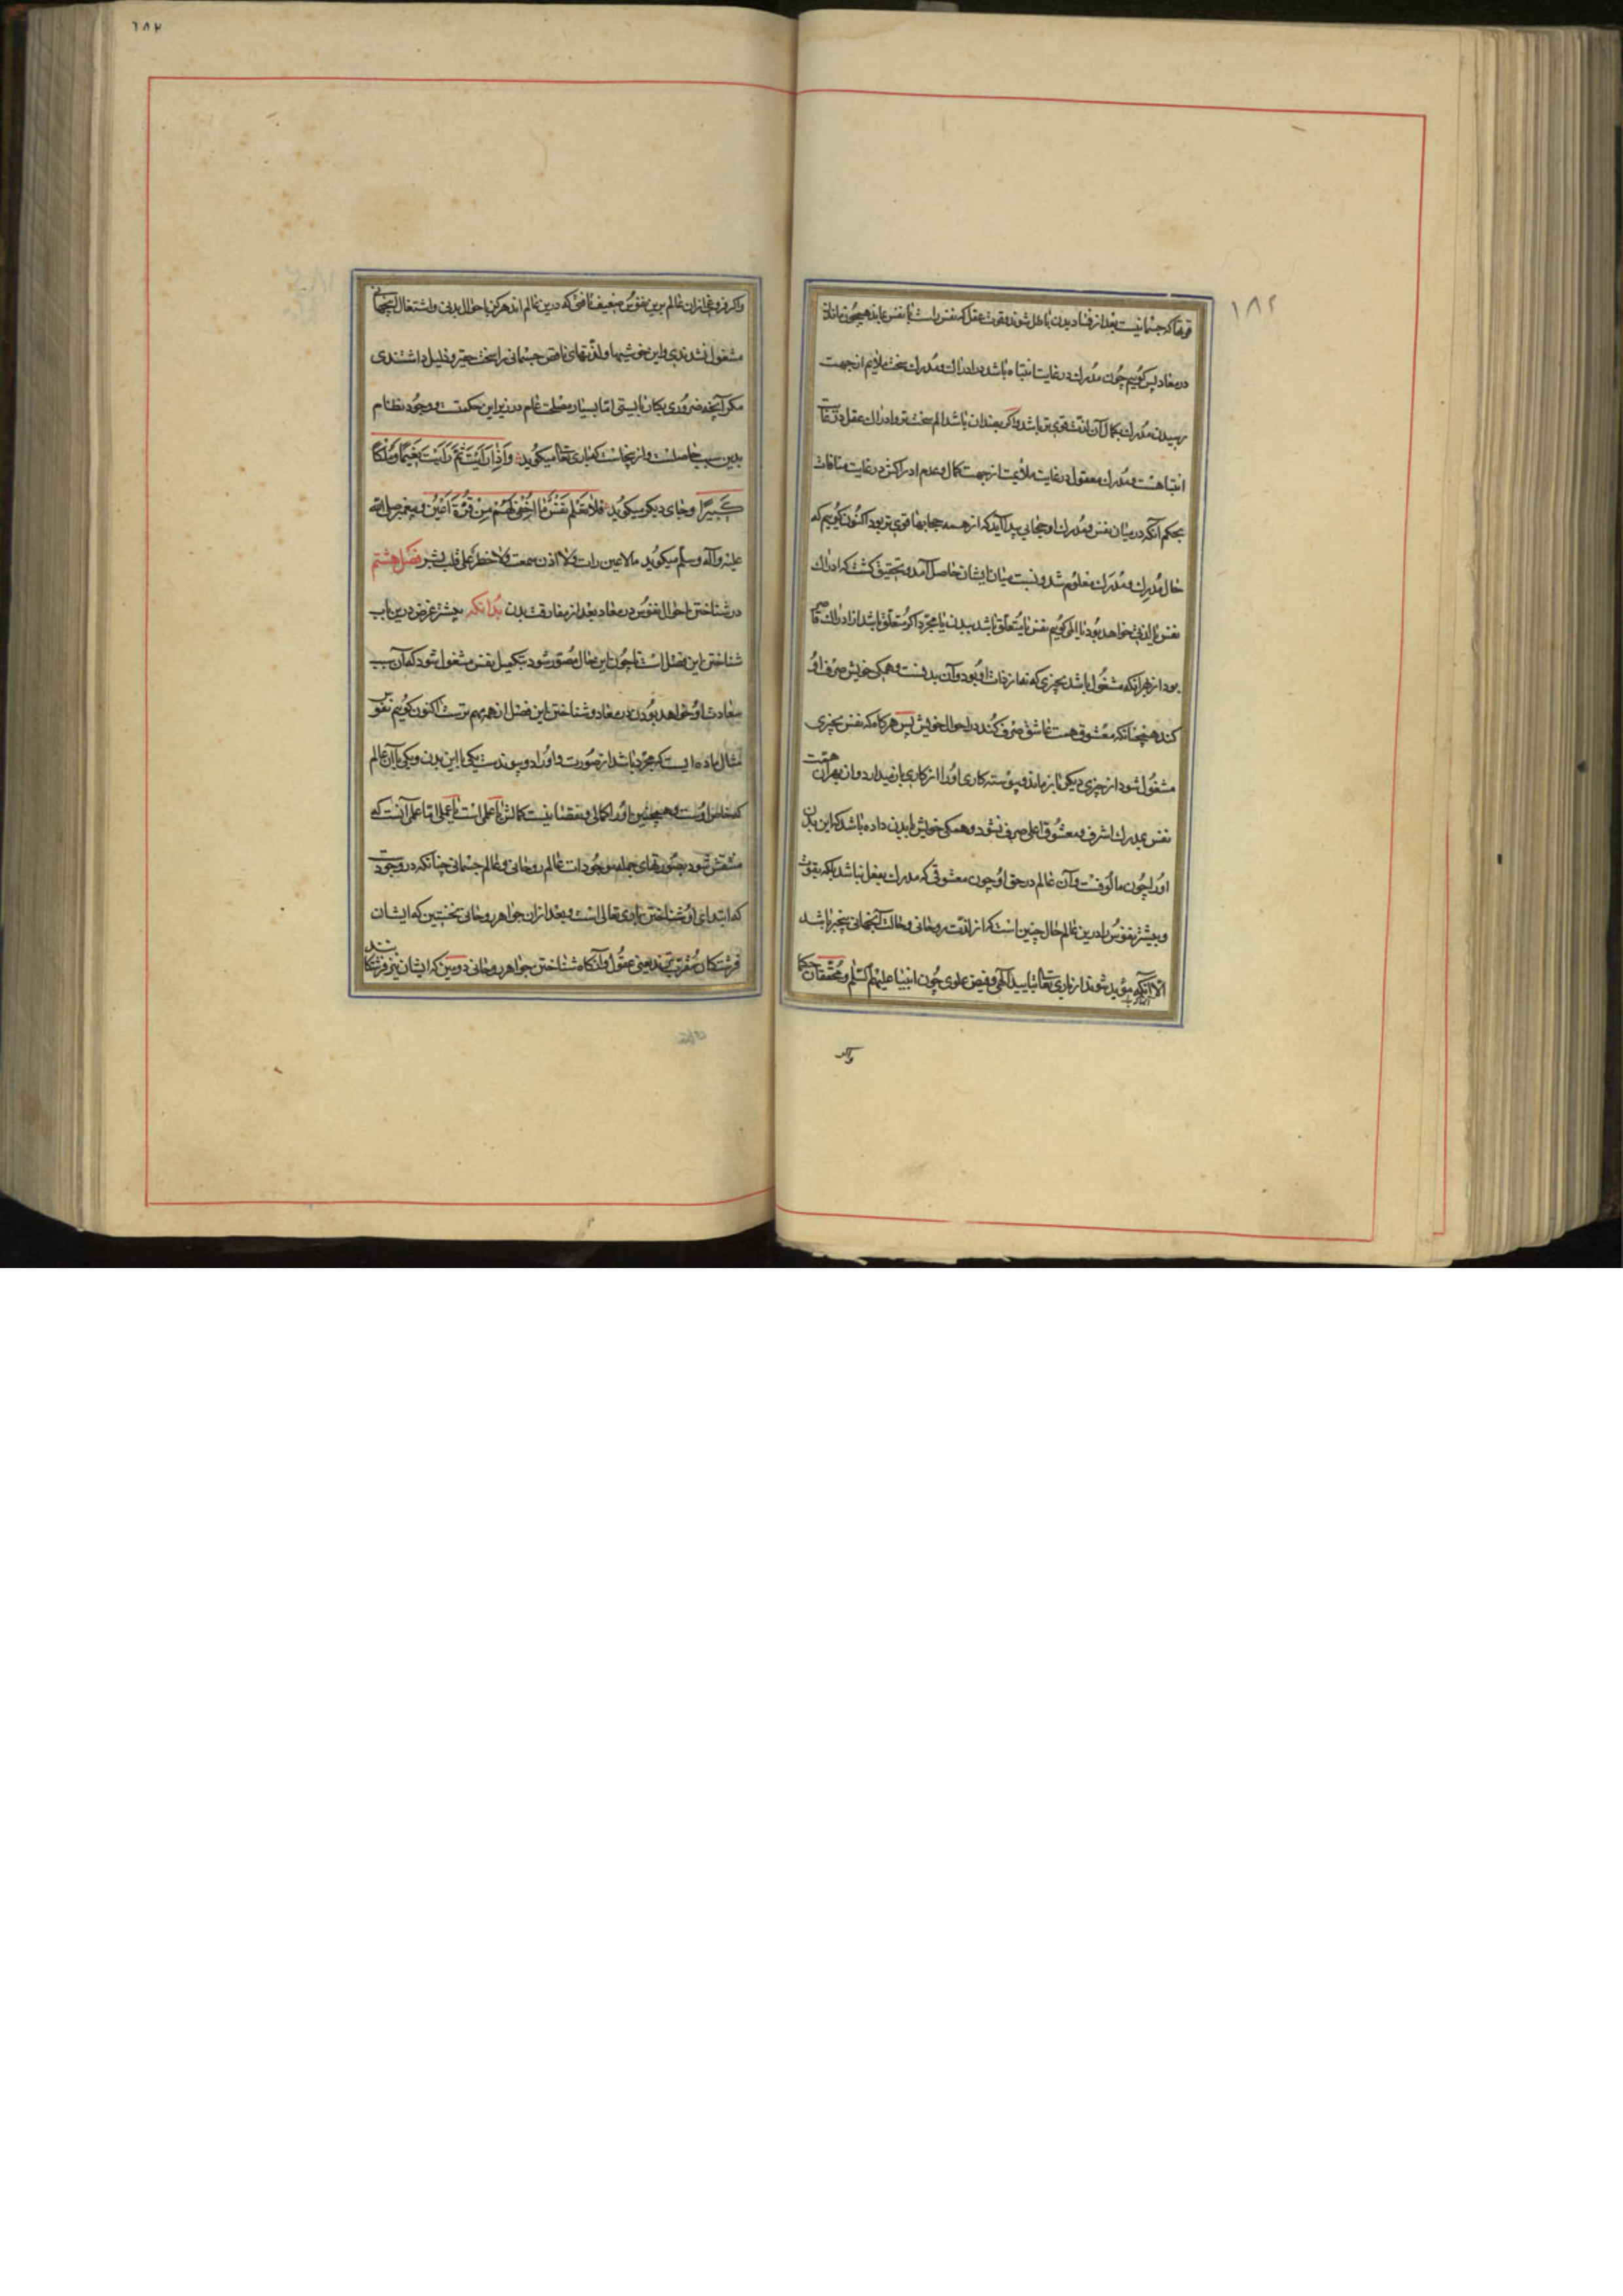 ۱۸۲
قوتها که جسمانیست بعد از فساد بدن باطل شوند و قوت عقل که نفس راست با نفس بماند همچون بماند
در معاد پس گوییم چون مدرك در غایت انتباه باشد در ادراك و مدرك سخت ملایم از جهت
رسیدن مدرك بکمال آن لذت قوی‌تر باشد و اگر بضد آن باشد الم سخت‌تر و ادراك عقل در غایت
انتباهست و مدرك معقول در غایت ملائمت از جهت کمال و عدم ادراکش در غایت منافات
بحکم آنکه در میان نفس و مدرك او حجابی پیدا آید که از همه حجابها قوی‌تر بود اکنون گوییم که
حال مدرِك و مدرَك معلوم شد و نسبت میان ایشان حاصل آمد و بتحقیق گشت که ادراك
نفس یا لذتی خواهد بود یا المی گوییم نفس یا متعلق باشد ببدن یا مجرد اگر متعلق باشد از ادراك قاصر
بود از بهر آنکه مشغول باشد بچیزی که نه از ذات او بود و آن بدنست و همگی خویش صرف او
کند همچنانکه معشوق همت عاشق صرف کند در احوال خویش پس هر گاه که نفس بچیزی
مشغول شود از چیزی دیگر باز ماند و پیوسته کاری او را از کاری باز میدارد و ازبهر آن همت
نفس بمدرك اشرف و معشوق اعلی صرف نشود و همگی خویش ببدن داده باشد که این بدن
او را چون مالوفست و آن عالم در حق او چون معشوقی که مدرك بفعل نباشد بلکه بقوت
و بیشتر نفوس را درین عالم حال چنین است که از لذت روحانی و حالت آنجهانی بیخبر باشد
الا آنکه مؤید شوند از باری تعالی بتایید الهی و فیض علوی چون انبیا علیهم السلم و محققان حکما
واکر
۱۸۲
واکر فروغی از آن عالم برین نفوس ضعیف تافتی که درین عالم اند هرگز باحوال بدنی و اشتغال اینجهانی
مشغول نشدندی و این خوشیها و لذتهای ناقص جسمانی را سخت حقیر و قلیل داشتندی
مگر آنچه ضروری بکار بایستی اما بسیار مصلحت عام در زیر این حکمت و وجود نظام
بدین سبب حاصلست و ازینجاست که باری تعالی میگوید وَاِذٰا رَاَیْتَ ثَمَّ رَاَیْتَ نَعِیْمًا وَ مُلْکًا
کَبِیْرًا و جای دیگر میگوید فَلاٰ تَعْلَمُ نَفْسٌ مٰا اُخْفِیَ لَهُمْ مِنْ قُرَّةِ اَعْیُنٍ و پیغمبر صلی الله
علیه و آله و سلم میگوید ما لا عین رات و لا اذن سمعت و لا خطر علی قلب بشر فصل هشتم
در شناختن احوال نفوس در معاد بعد از مفارقت بدن بدانکه بیشتر غرض درین باب
شناختن این فصل است تا چون این حال مصور شود بتکمیل نفس مشغول شود که آن سبب
سعادت او خواهد بودن در معاد و شناختن این فصل از همه مهم ترست اکنون گوییم نفوس
مثال ماده ایست که مجرد باشد از صورت و او را دو پیوندست یکی با این بدن و یکی با آن عالم
که خاص اوست و همچنین او را کمالی و نقصانیست کمالش یا علمی است یا عملی اما علمی آنست که
منتقش شود بصورتهای جمله موجودات عالم روحانی و عالم جسمانی چنانکه در وجودست
که ابتدای او شناختن باری تعالی است و بعد از آن جواهر روحانی نخستین که ایشان
فرشتگان مقرب‌اند یعنی عقول و آنگاه شناختن جواهر روحانی دومین که ایشان نیز فرشتگانند